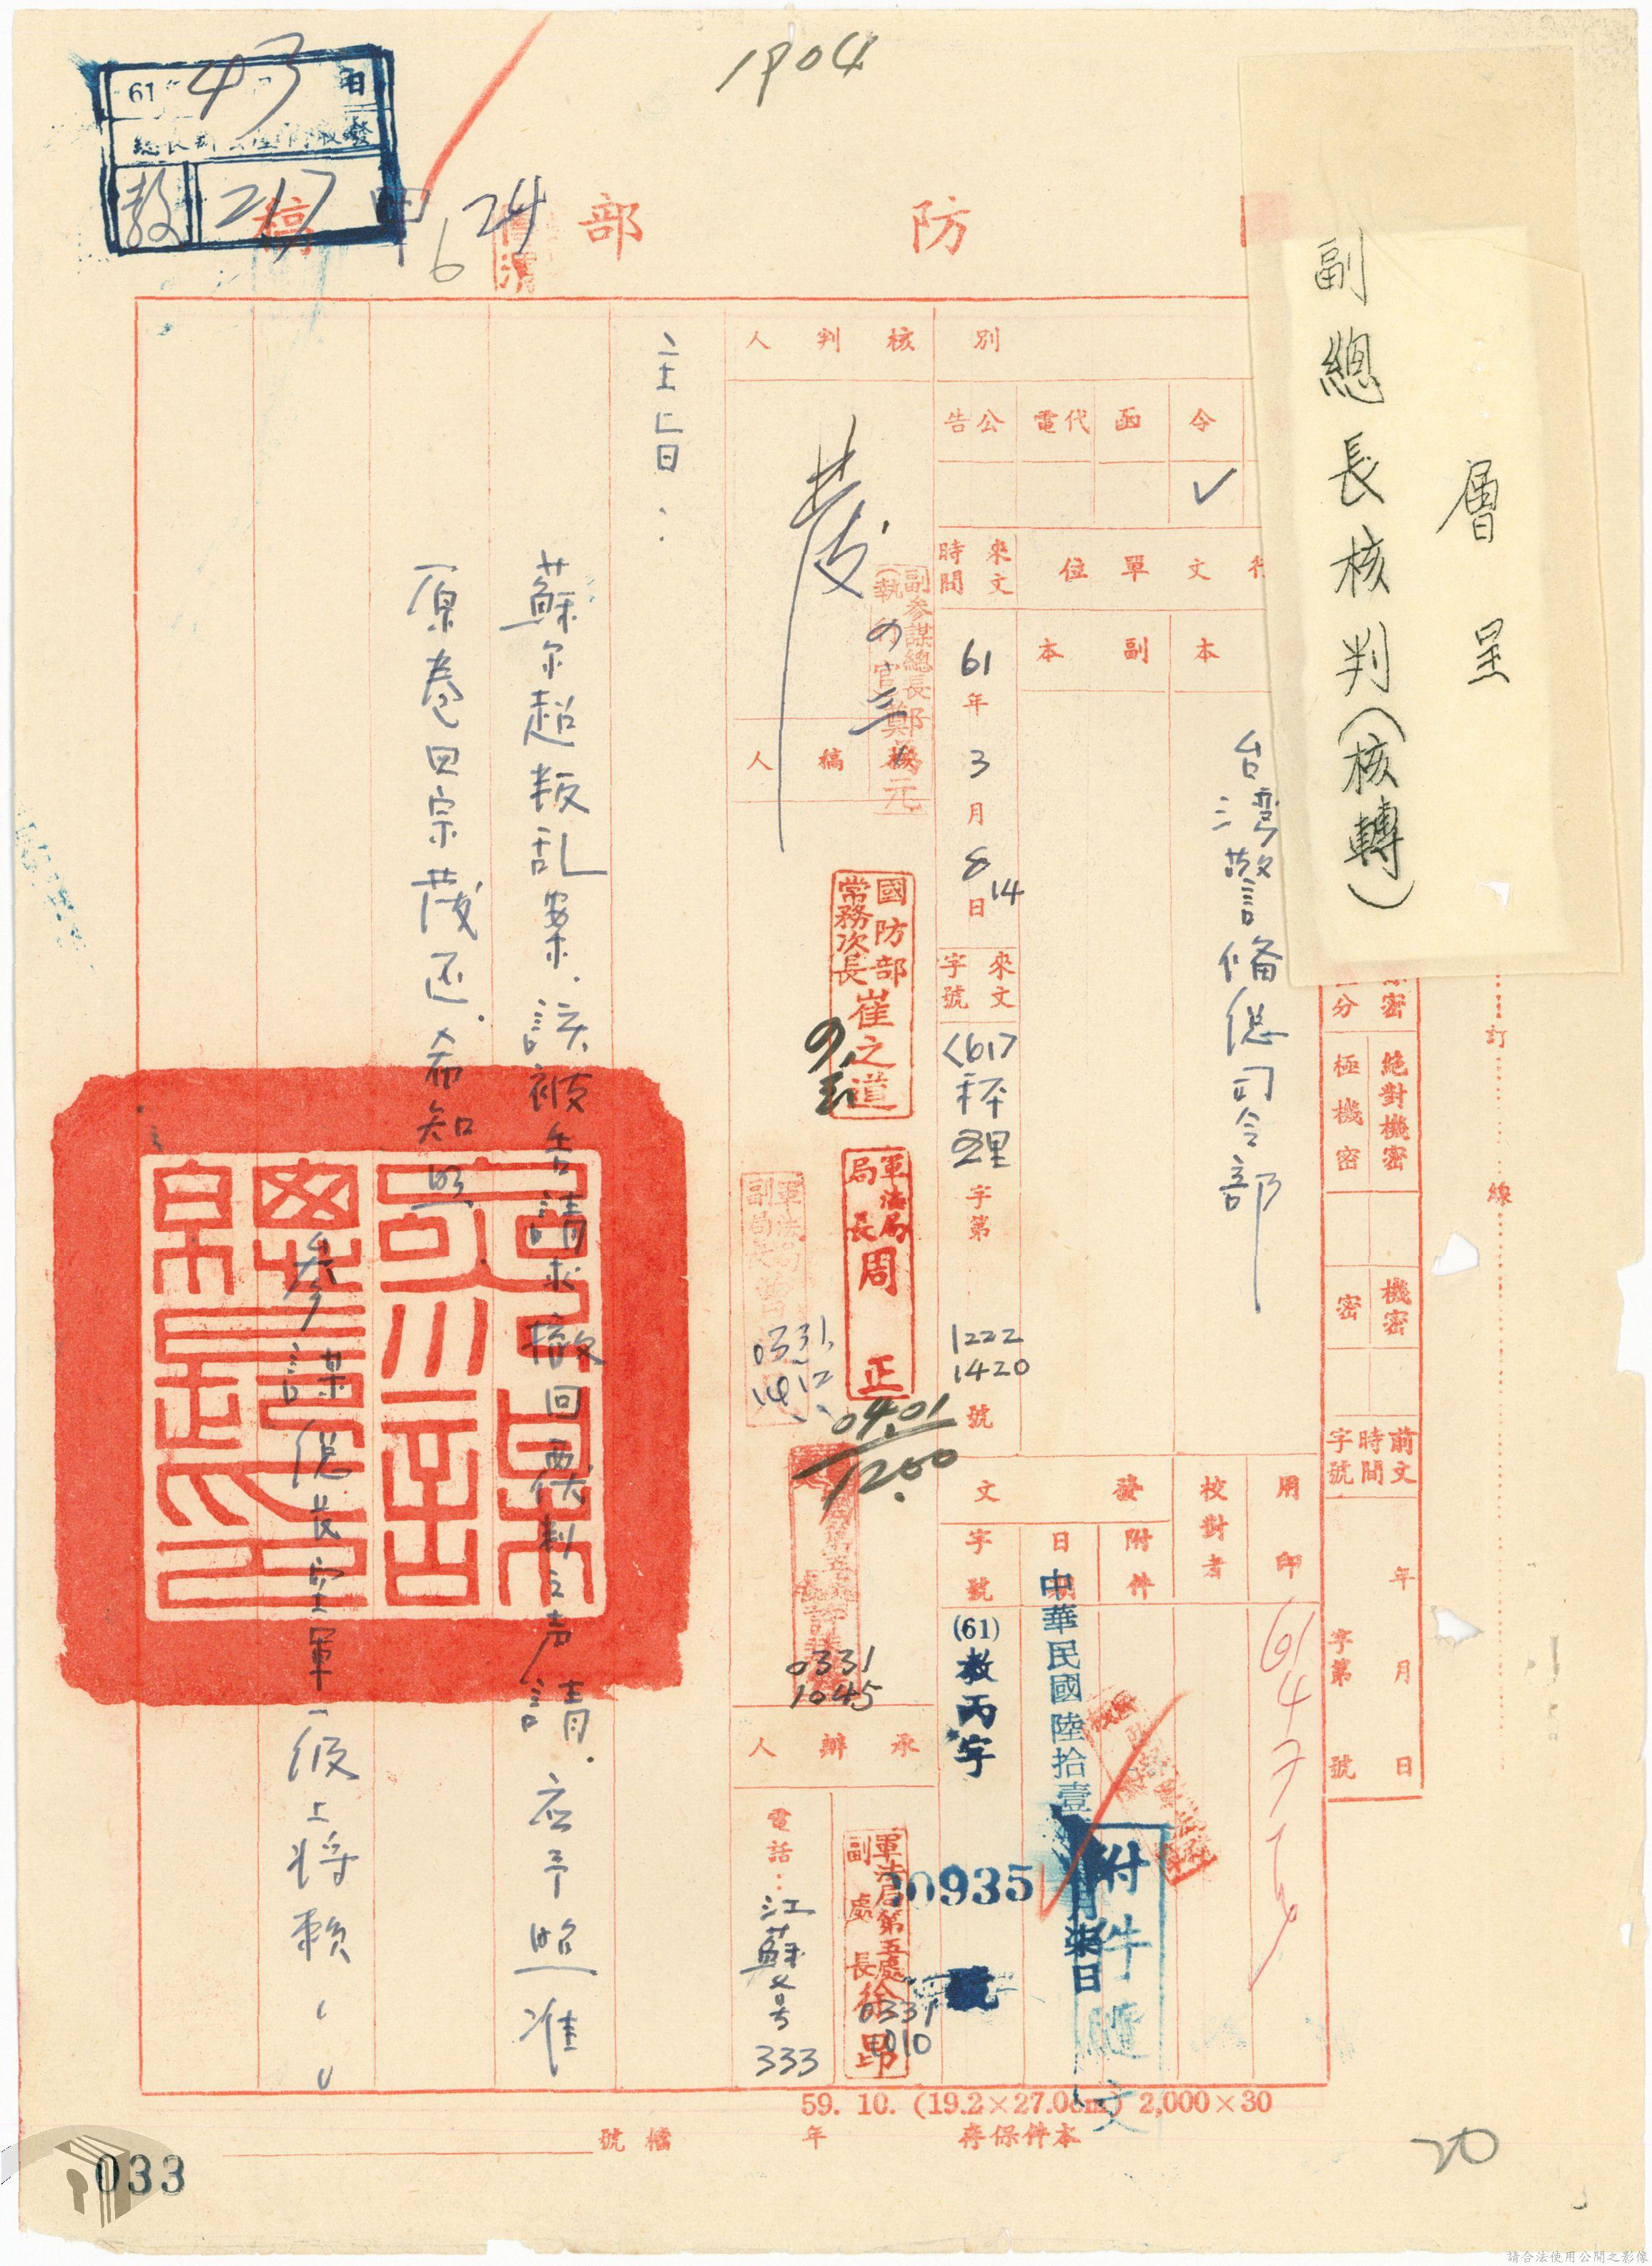 1904
層呈
副總長核判（核轉）
防部
稿
61 4 3 日
教 217
24
6
訂
線
絶對機密
極機密
機密
密
前文時間字號
年月日
字第號
別
令
函
代電
公告
✓
行文單位
本
副本
台湾警備總司令部
來文時間
61年3月8日
14
來文字號
(61)秤理字第號
1222
1420
用印
校對者
發文
附件
日
字號
中華民國陸拾壹
月柒日
(61)教丙字
00935
號
附件隨文
61 4 7
核判人
副參謀總長（執行官）鄭為元
國防部常務次長崔之道
核稿人
軍法局局長周正
04.01
1200
軍法局副局長
0331
1412
0331
1045
承辦人
軍法局第五處副處長徐昂
0331
1010
電話：江蘇號333
主旨：
蘇尔超叛乱案．該被告請求撤回覆判之声請．应予照准
原卷四宗茂还．希知照
參謀總長空軍一級上將賴
59. 10. (19.2×27.0cm) 2,000×30
本件保存
年
檔號
033
20
請合法使用公開之影像